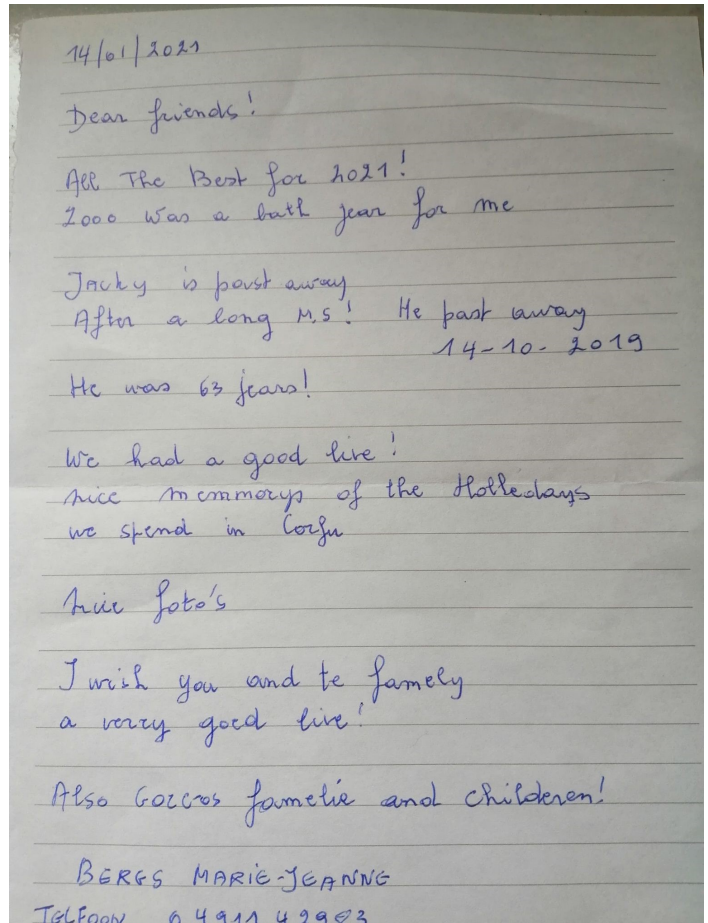 14/01/2021
Dear friends!
All The Best for 2021!
2000 was a bath jear for me
Jacky is past away
After a long M.S! He past away
14-10-2019
He was 63 jears!
We had a good live!
nice memmorys of the Holledays
we spend in Corfu
nice foto's
I wish you and te famely
a verry good live!
Also famelie and childeren!
BERGS MARIE-JEANNE
TELEFOON